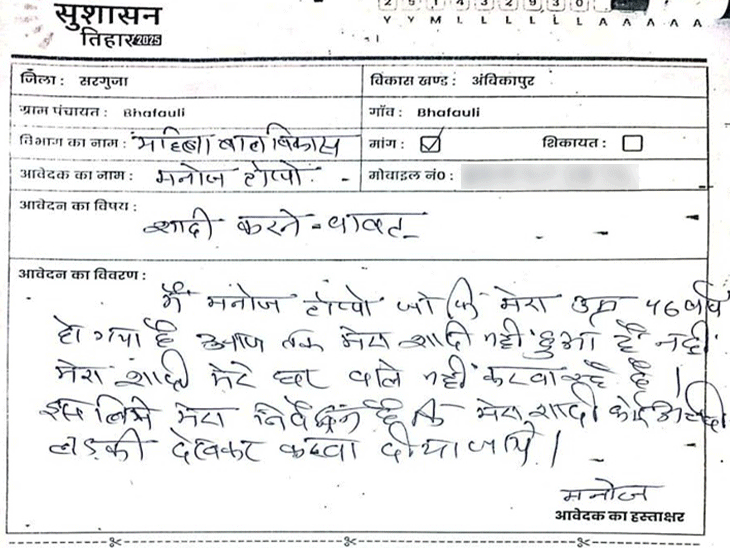 सुशासन
तिहार 2025
2 9 1 4 3 2 9 3 0
Y Y M L L L L L L A A A A A
जिला : सरगुजा विकास खण्ड : अंबिकापुर
ग्राम पंचायत : Bhafauli गाँव : Bhafauli
विभाग का नाम : महिला बाल विकास मांग : ☑ शिकायत : ☐
आवेदक का नाम : मनोज टोप्पो मोबाइल नं० :
आवेदन का विषय :
शादी करने - बावत
आवेदन का विवरण :
मैं मनोज टोप्पो जो कि मेरा उम्र 46 वर्ष
हो गया है आज तक मेरा शादी नहीं हुआ है नही
मेरा शादी मेरे घर वाले नहीं करवा रहे है ।
इस लिये मेरा निवेदन है कि मेरा शादी कोई अच्छी
लड़की देखकर करवा दीया जाये ।
मनोज
आवेदक का हस्ताक्षर